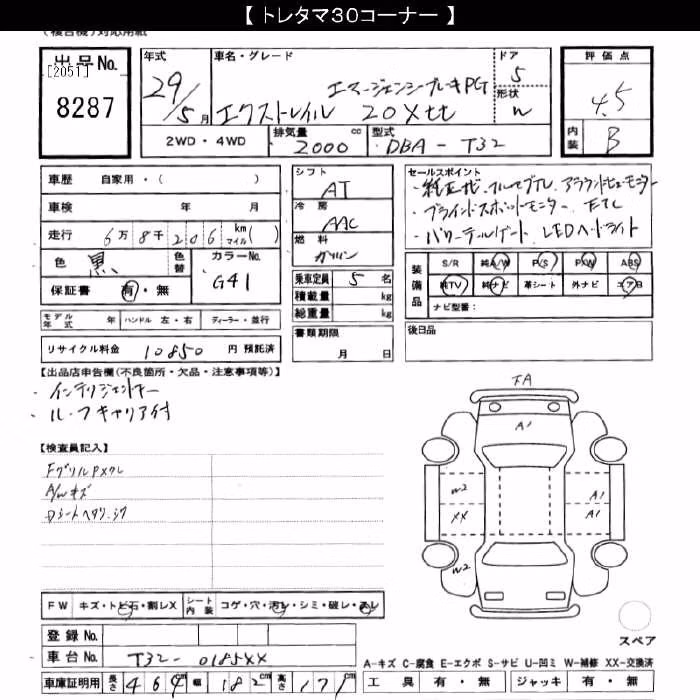 【 トレタマ30コーナー 】
(複合機)対応用紙
出品No.
[2051]
8287
年式
29/5月
車名・グレード
エマージェンシーブレーキPG
エクストレイル 20Xtt
ドア
5
形状
W
評価点
4.5
内装
B
2WD・4WD
排気量
2000 cc
型式
DBA-T32
車歴 自家用・( )
車検 年 月
走行 6万8千206 km マイル( )
色 黒
色替
カラーNo.
G41
保証書 有・無
モデル年式 年 ハンドル 左・右 ディーラー・並行
リサイクル料金 10850 円 預託済
シフト
AT
冷房
AAC
燃料
ガソリン
乗車定員 5名
積載量 kg
総重量 kg
書類期限
月 日
セールスポイント
・純正ナビ、フルセグTV、アラウンドビューモニター
・ブラインドスポットモニター、ETC
・パワーテールゲート、LEDヘッドライト
装備品
S/R 純A/W P/S PXW ABS
純TV 純ナビ 革シート 外ナビ エアB
ナビ型番:
後日品
【出品店申告欄(不良箇所・欠品・注意事項等)】
・インテリジェントキー
・ルーフキャリア付
【検査員記入】
FグリルPXワレ
A/Wキズ
Dシートヘタリ・シワ
FW キズ・トビ石・割レX
シート内装 コゲ・穴・汚レ・シミ・破レ・スレ
登録No.
車台No. T32-0185XX
車庫証明用 長さ 464 幅 182cm 高さ 171
TA
A1
W2
XX
W2
A1
A1
スペア
A-キズ C-腐食 E-エクボ S-サビ U-凹ミ W-補修 XX-交換済
工具 有・無 ジャッキ 有・無